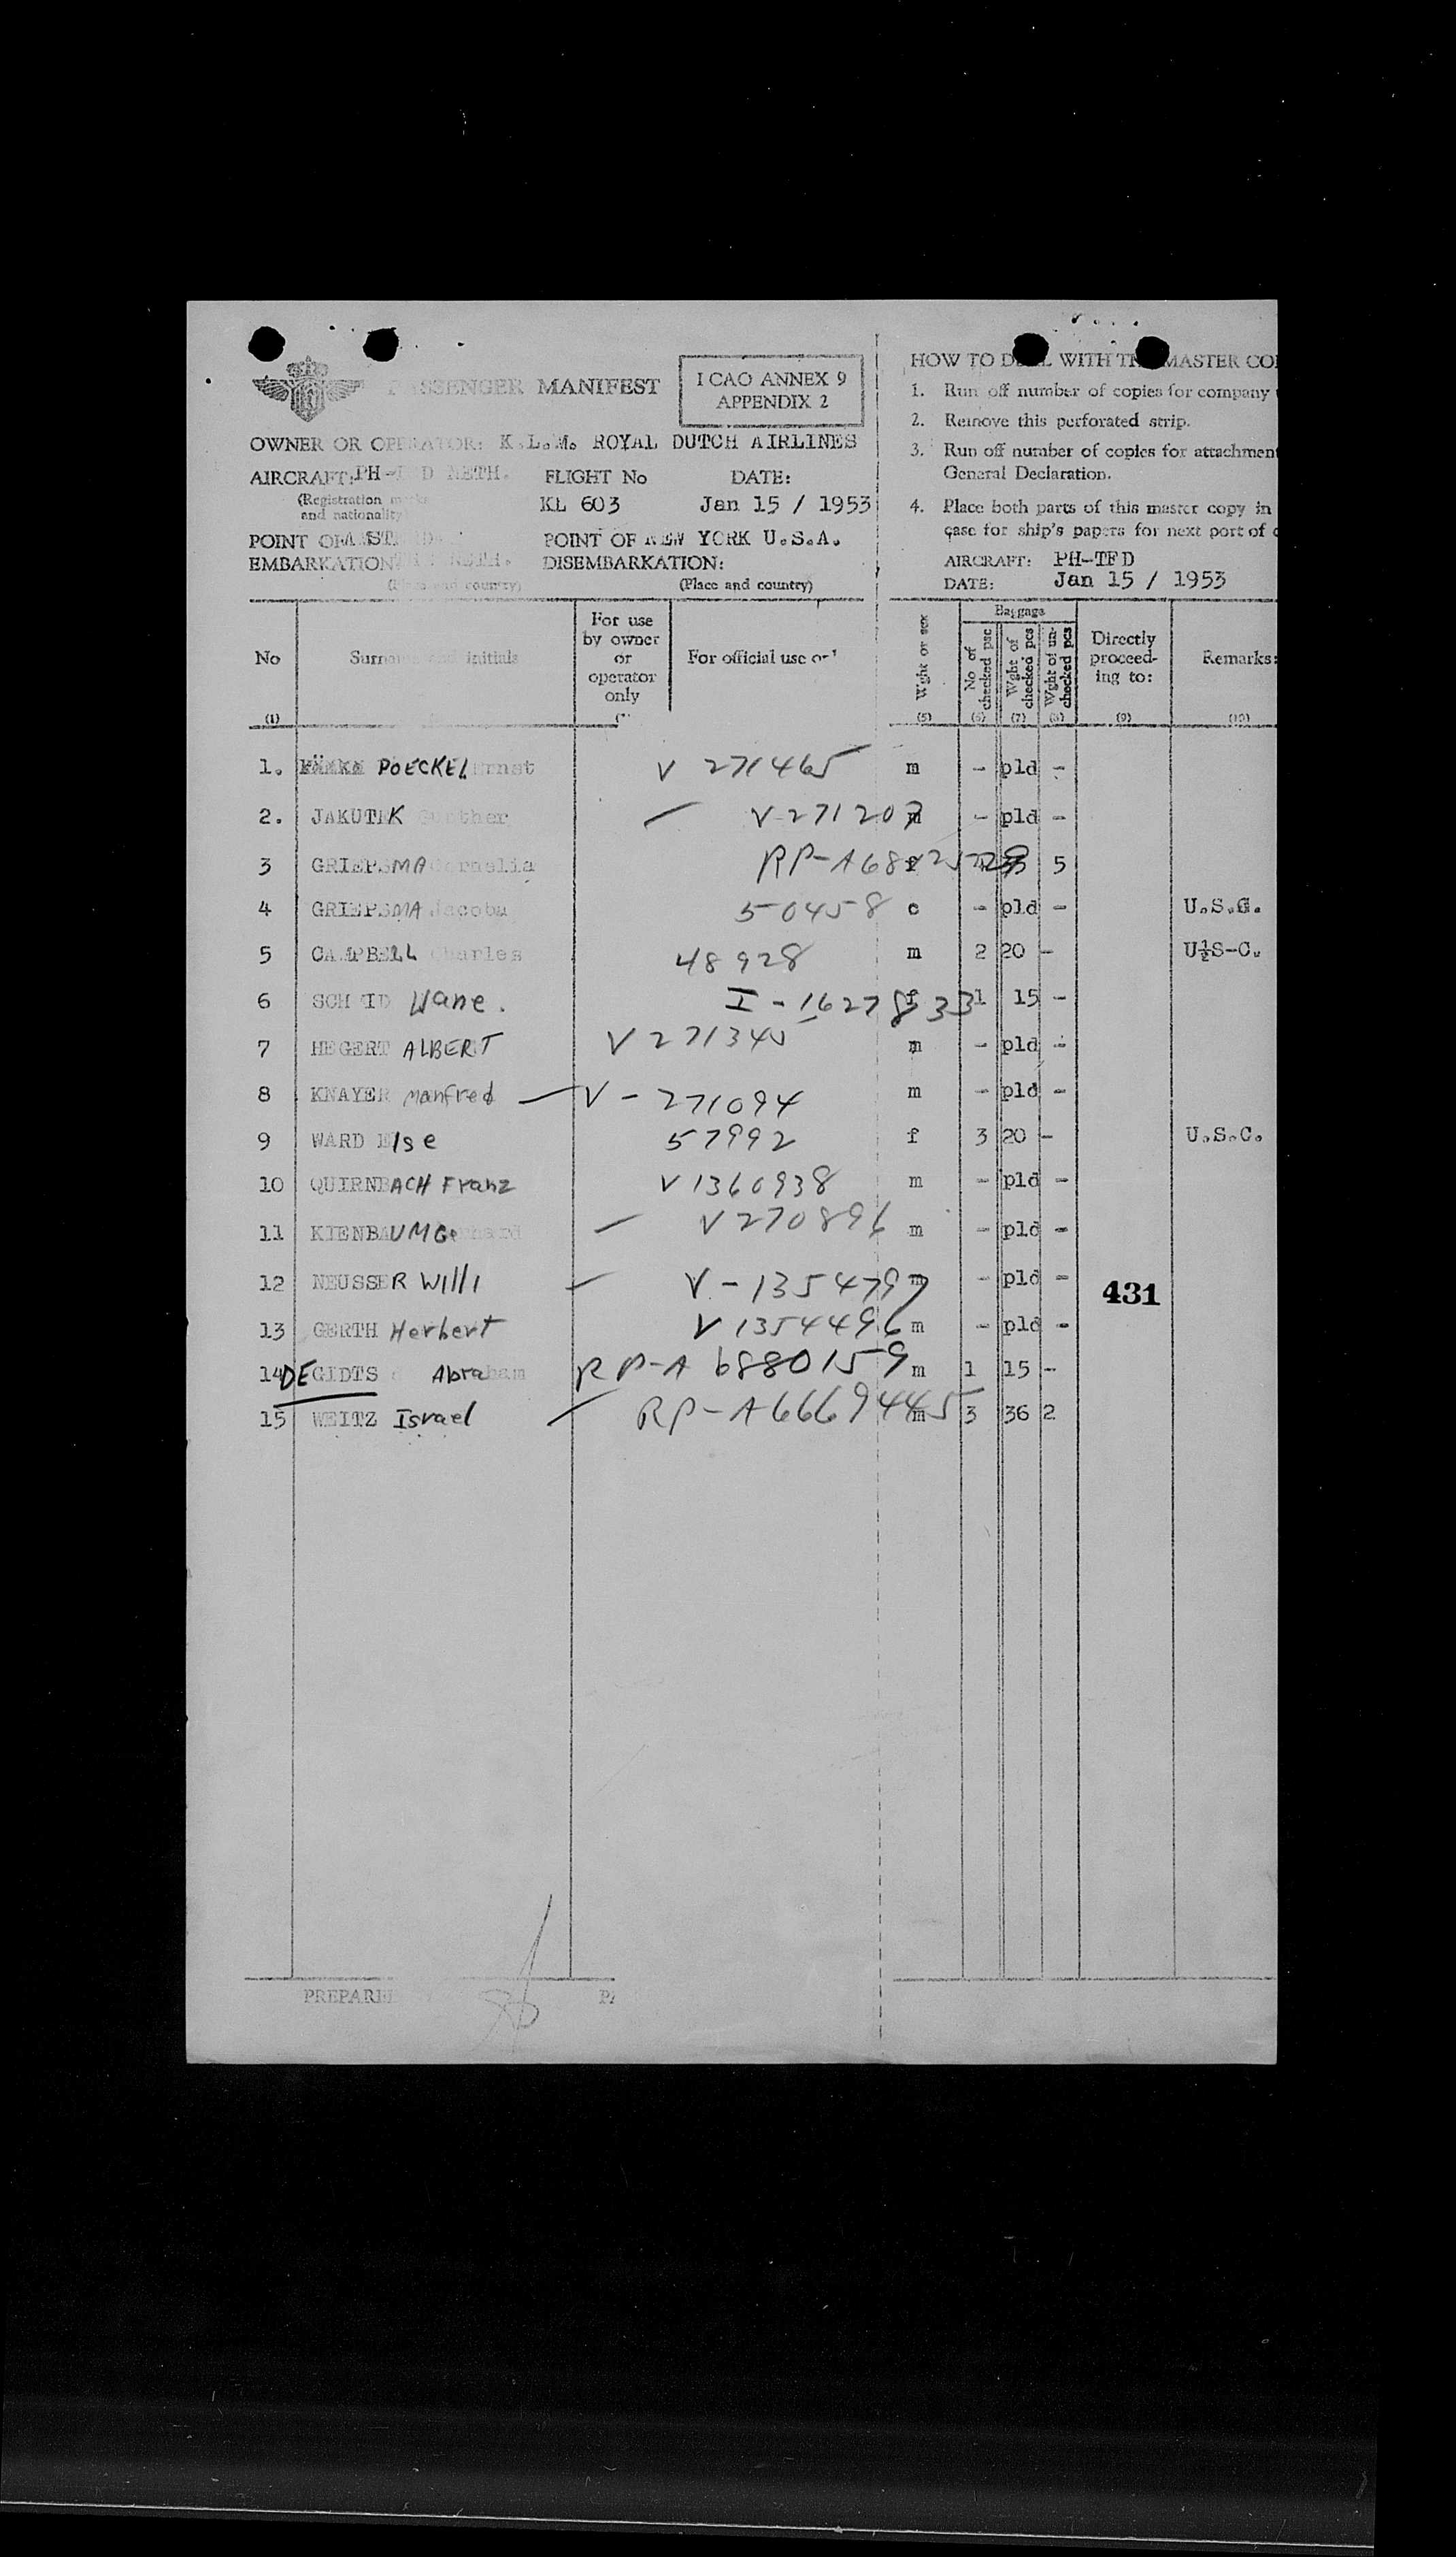 PASSENGER MANIFEST
I CAO ANNEX 9
APPENDIX 2
OWNER OR OPERATOR: K.L.M. ROYAL DUTCH AIRLINES
AIRCRAFT: PH- D NETH. FLIGHT No DATE:
(Registration marks
and nationality
KL 603 Jan 15 / 1953
POINT OF POINT OF NEW YORK U.S.A.
EMBARKATION NETH. DISEMBARKATION:
(Place and country) (Place and country)
HOW TO DEAL WITH THE MASTER
1. Run off number of copies for company
2. Remove this perforated strip.
3. Run off number of copies for
General Declaration.
4. Place both parts of this master copy in
case for ship's papers for next port of
AIRCRAFT: PH-TFD
DATE: Jan 15 / 1953
No Surname and initials For use by owner or operator only For official use
Wght or sex Baggage No of checked psc Wght of checked pcs Wght of un-checked pcs Directly proceed-ing to: Remarks:
(1) (5) (6) (7) (8) (9) (10)
1. POECKEL Ernst V 271465 m - pld -
2. JAKUTEK Gunther V-27120 m - pld -
3 GRIEPSMA Cornelia RP-A68 f 5
4 GRIEPSMA Jacoba 50458 c - pld - U.S.C.
5 CAMPBELL Charles 48928 m 2 20 - U½S-C.
6 I-1627833 f 1 15 -
7 HEGERT ALBERT V 271345 m - pld -
8 KNAYER Manfred V-271094 m - pld -
9 WARD Else 57992 f 3 20 - U.S.C.
10 QUIRNBACH Franz V1360938 m - pld -
11 KIENBAUM Gerhard V270896 m - pld -
12 NEUSSER Willi V-1354797 m - pld -
431
13 GERTH Herbert V 1354496 m - pld -
14 DE GIDTS Abraham RP-A 6880159 m 1 15 -
15 WEITZ Israel RP-A6669445 m 3 36 2